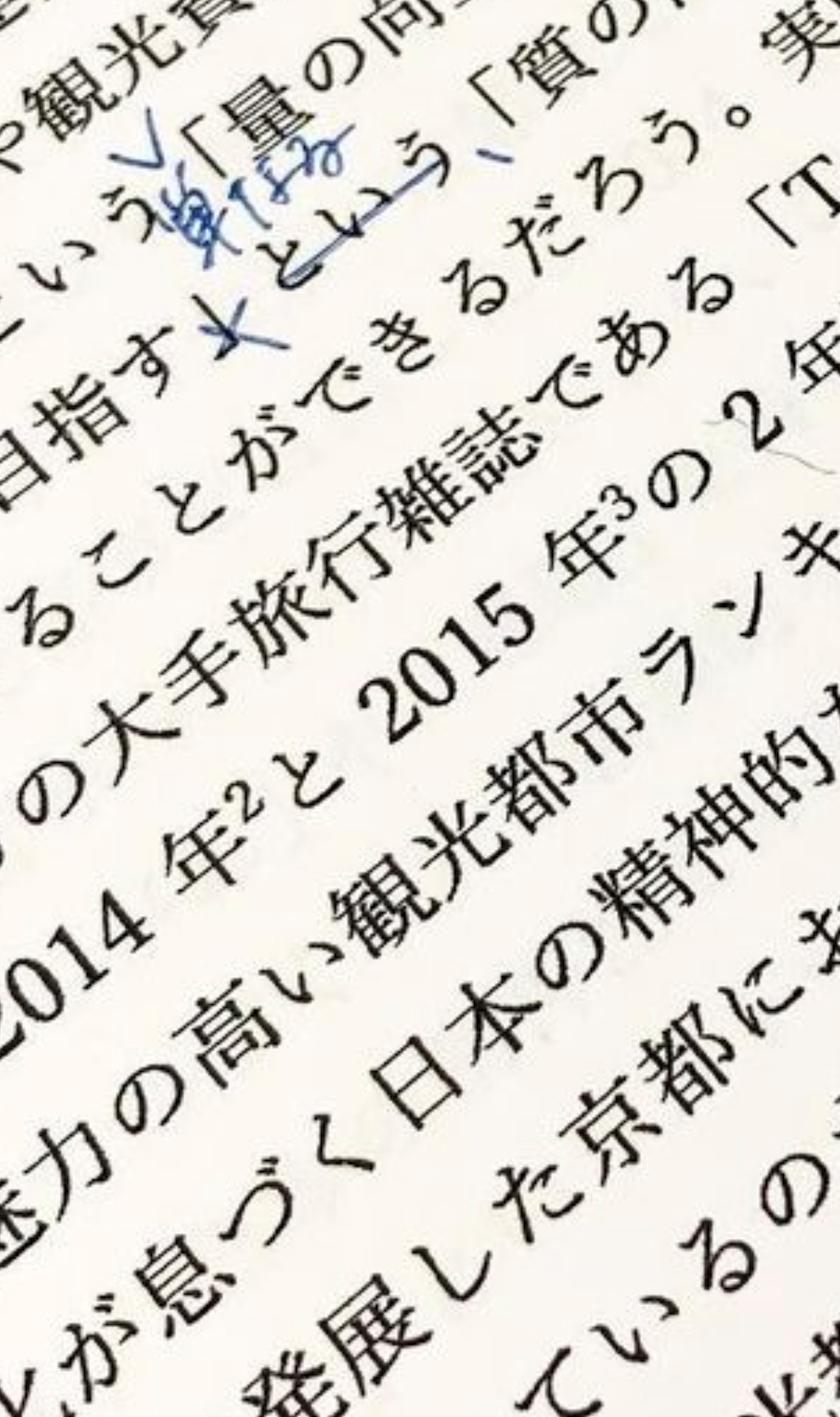 や観光資
という「量の向
単なる
目指す」という、「質の
ることができるだろう。実
の大手旅行雑誌である「T
2014 年²と 2015 年³の 2 年
魅力の高い観光都市ランキ
が息づく日本の精神的
発展した京都にあ
ているの